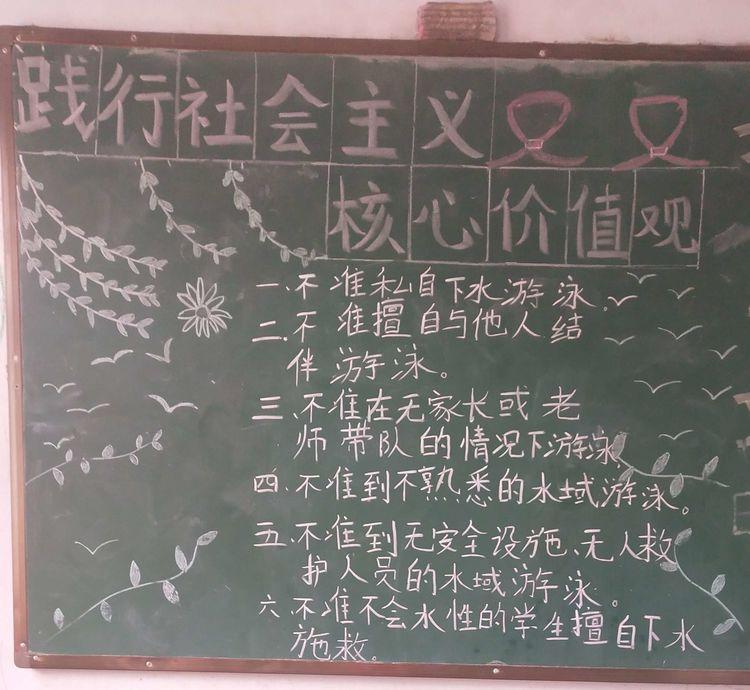 践行社会主义
核心价值观
一、不准私自下水游泳。
二、不准擅自与他人结
伴游泳。
三、不准在无家长或老
师带队的情况下游泳。
四、不准到不熟悉的水域游泳。
五、不准到无安全设施、无人救
护人员的水域游泳。
六、不准不会水性的学生擅自下水
施救。